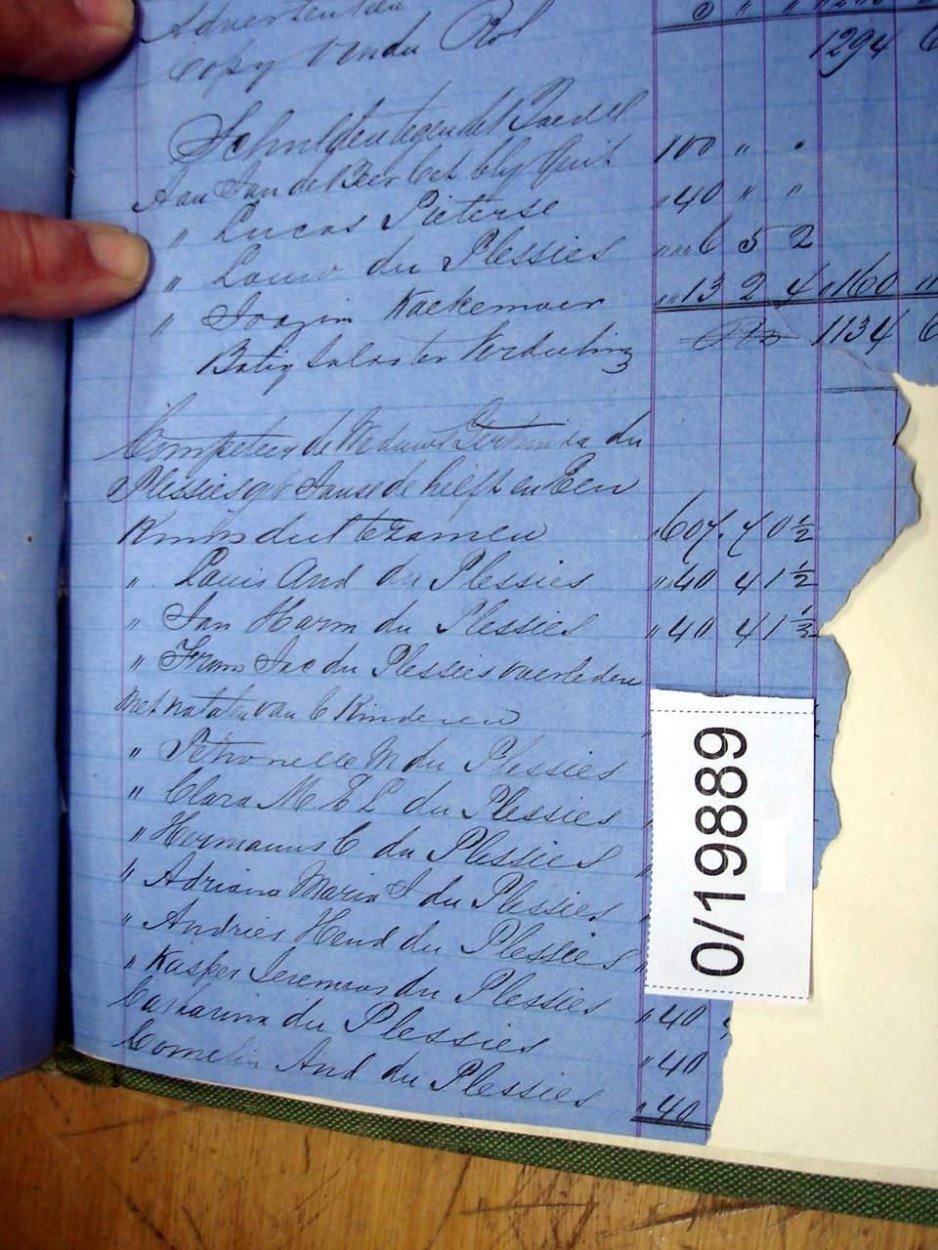 Advertentien 5 " "
Copy vendu Rol 1294 6
Schulden tegen det Boedel
Aan Jan de Beer Oct bly Quit 100 " "
" Lucas Pieterse " 40 " "
" Louw du Plessies " " 6 5 2
" Joazim Koekemoer " 13 2 4 " 160 "
Batig Saldo ter Verdeeling 1134 6
Competeer de Weduwe du
Plessies gb Janse de helft en Een
Kinds deel te zamen " 607 . 7 0 ½
" Louis And du Plessies " 40 4 1 ½
" Jan Harm du Plessies " 40 4 1 ½
" Frans Jac du Plessies overleden
met natalen van 6 Kinderen
" Petronella M du Plessies
" Clara M E L du Plessies
" Hermanus C du Plessies
" Adriana Maria J du Plessies
" Andries Hend du Plessies
" Kasper Jeremias du Plessies " 40
Catharina du Plessies " 40
Cornelis And du Plessies " 40
0/19889